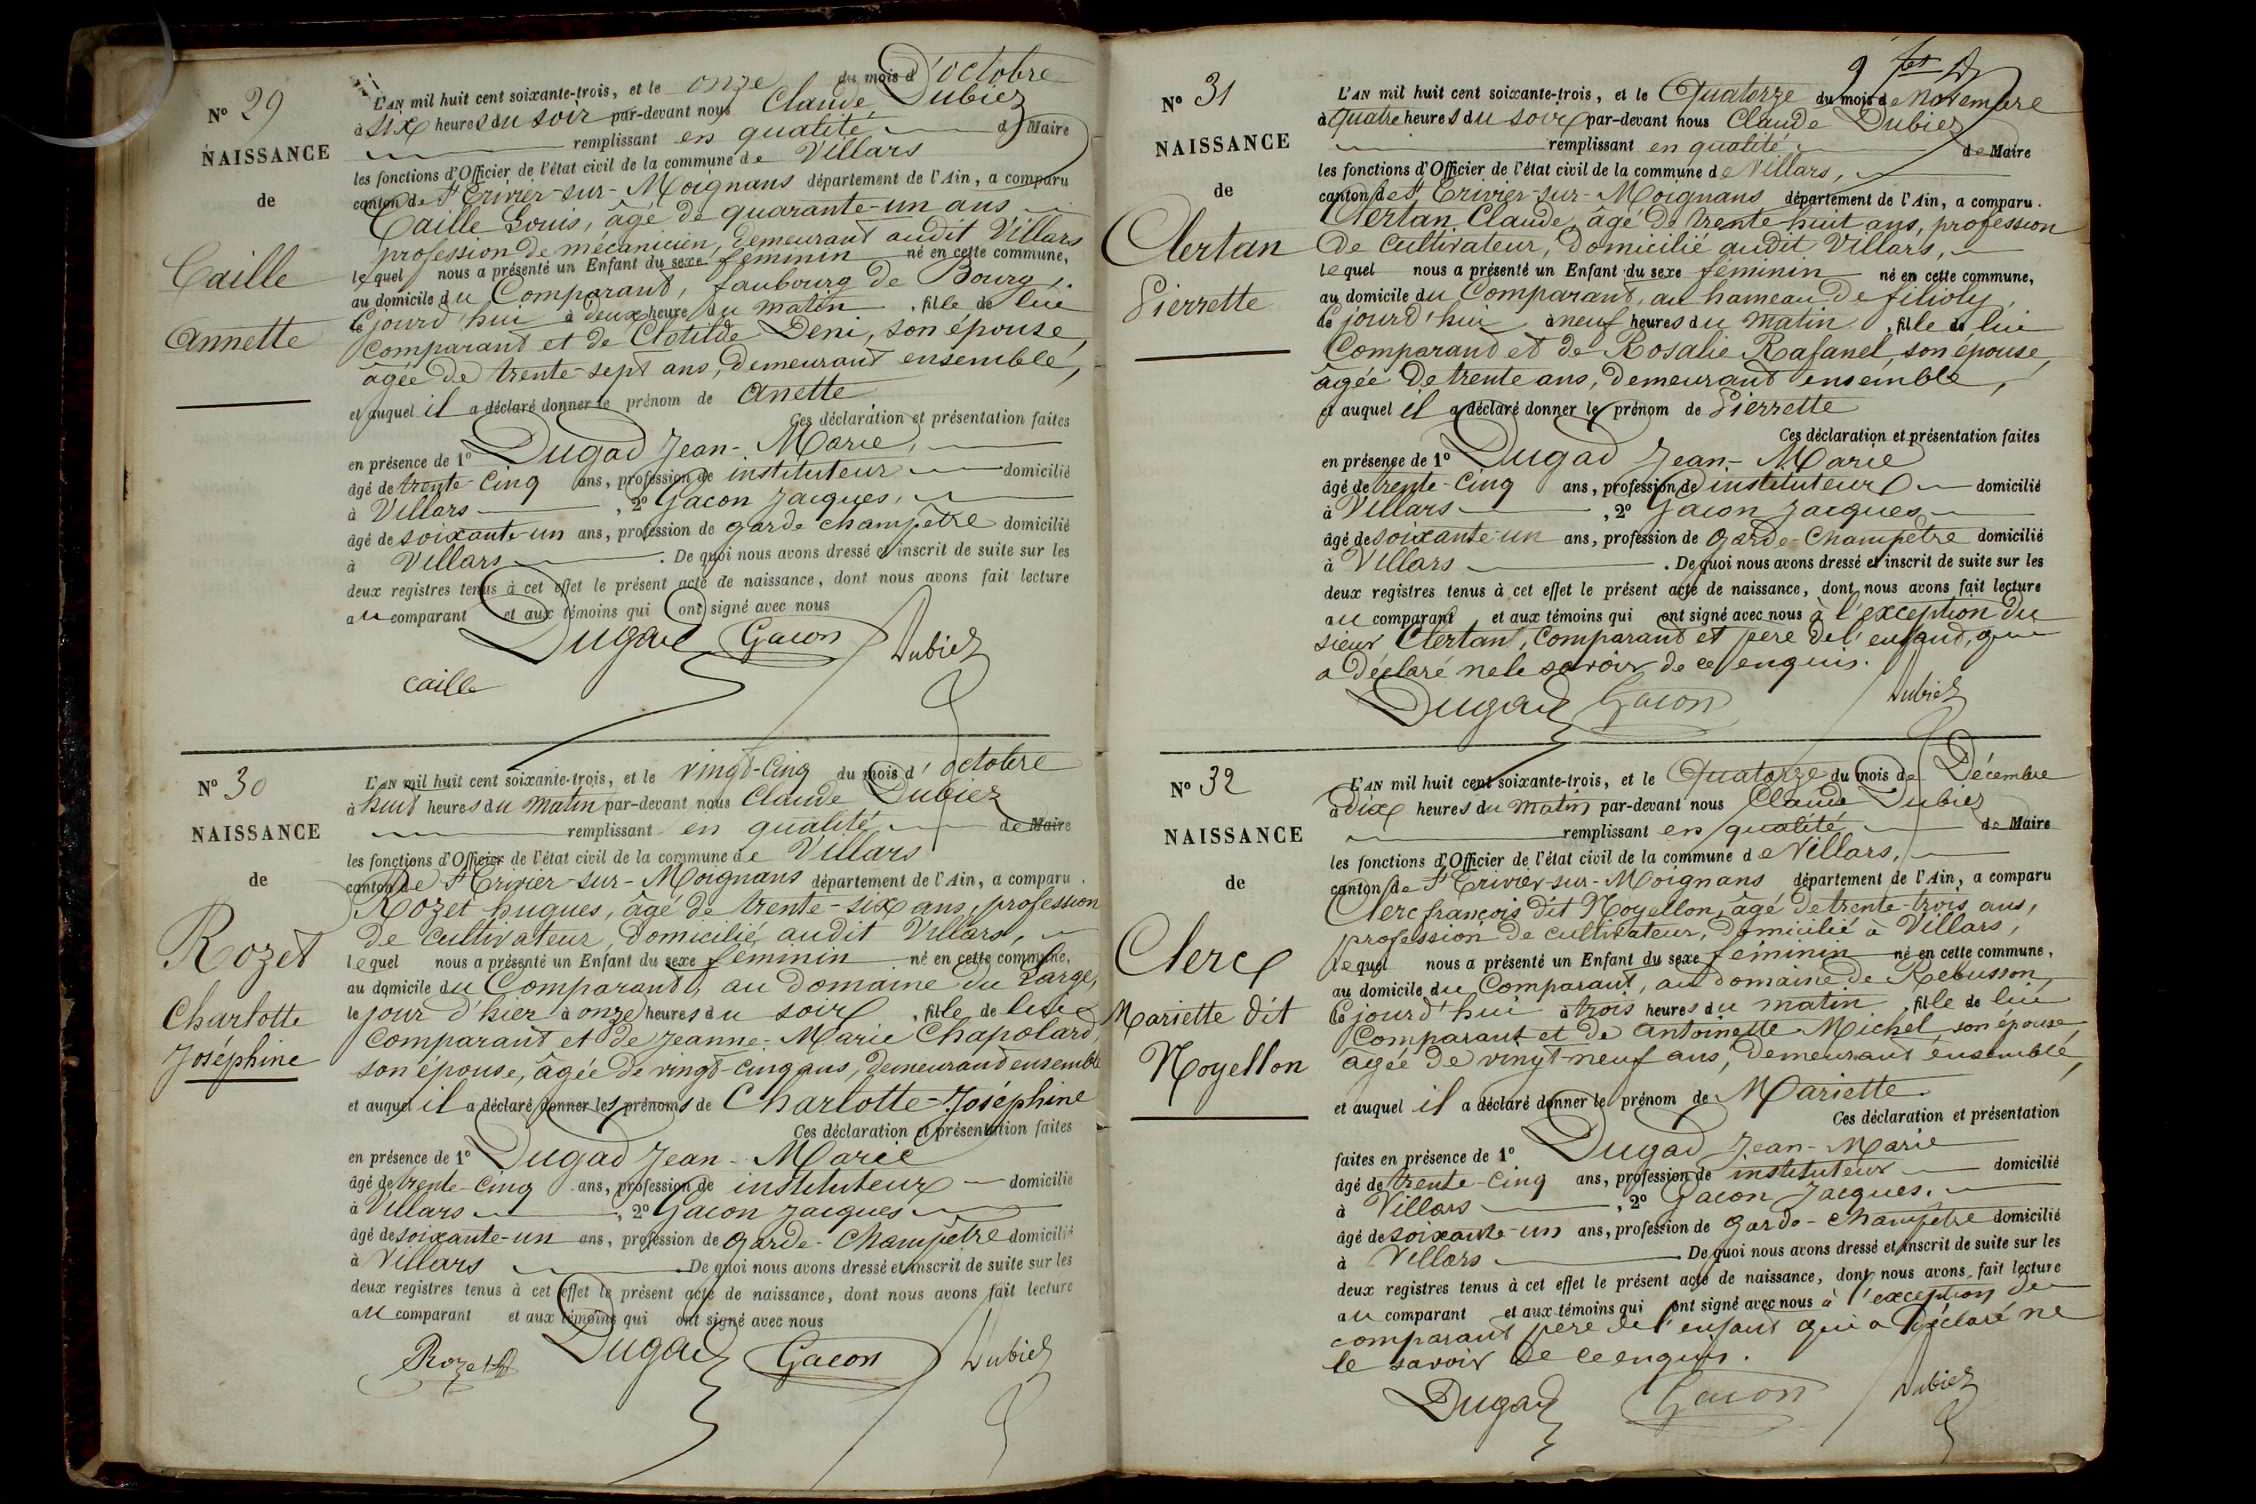 N° 29
NAISSANCE
de
Caille
Annette
L'AN mil huit cent soixante-trois, et le onze du mois d'octobre
à six heures du soir par-devant nous Claude Dubiez
remplissant en qualité de Maire
les fonctions d'Officier de l'état civil de la commune de Villars
canton de St Trivier-sur-Moignans département de l'Ain, a comparu
Caille Louis, âgé de quarante-un ans
profession de mécanicien, demeurant audit Villars
lequel nous a présenté un Enfant du sexe féminin né en cette commune,
au domicile du Comparant, faubourg de Bourg,
le jourd'hui à deux heures du matin, fille de lui
comparant et de Clotilde Deni, son épouse,
âgée de trente-sept ans, demeurant ensemble,
et auquel il a déclaré donner le prénom de Anette
Ces déclaration et présentation faites
en présence de 1° Dugad Jean-Marie,
âgé de trente-cinq ans, profession de instituteur domicilié
à Villars, 2° Gacon Jacques,
âgé de soixante-un ans, profession de garde champêtre domicilié
à Villars. De quoi nous avons dressé et inscrit de suite sur les
deux registres tenus à cet effet le présent acte de naissance, dont nous avons fait lecture
au comparant et aux témoins qui ont signé avec nous
Dugad Gacon Dubiez
caille
N° 30
NAISSANCE
de
Rozet
Charlotte
Joséphine
L'AN mil huit cent soixante-trois, et le vingt-cinq du mois d'octobre
à huit heures du matin par-devant nous Claude Dubiez
remplissant en qualité de Maire
les fonctions d'Officier de l'état civil de la commune de Villars
canton de St Trivier-sur-Moignans département de l'Ain, a comparu.
Rozet hugues, âgé de trente-six ans, profession
de cultivateur, domicilié audit Villars,
lequel nous a présenté un Enfant du sexe féminin né en cette commune,
au domicile du Comparant, au domaine du Large,
le jour d'hier à onze heures du soir, fille de lui
comparant et de Jeanne-Marie Chapolard,
son épouse, âgée de vingt-cinq ans, demeurand ensemble
et auquel il a déclaré donner les prénoms de Charlotte-Joséphine
Ces déclaration et présentation faites
en présence de 1° Dugad Jean-Marie
âgé de trente-cinq ans, profession de instituteur domicilié
à Villars, 2° Gacon Jacques
âgé de soixante-un ans, profession de garde-Champêtre domicilié
à Villars. De quoi nous avons dressé et inscrit de suite sur les
deux registres tenus à cet effet le présent acte de naissance, dont nous avons fait lecture
au comparant et aux témoins qui ont signé avec nous
Rozet Dugad Gacon Dubiez
N° 31
NAISSANCE
de
Clertan
Pierrette
L'AN mil huit cent soixante-trois, et le Quatorze du mois de Novembre
à quatre heures du soir par-devant nous Claude Dubiez
remplissant en qualité de Maire
les fonctions d'Officier de l'état civil de la commune de Villars,
canton de St Trivier-sur-Moignans département de l'Ain, a comparu.
Clertan Claude, âgé de trente-huit ans, profession
de cultivateur, domicilié audit Villars,
lequel nous a présenté un Enfant du sexe féminin né en cette commune,
au domicile du Comparant, au hameau de filioly,
le jourd'hui à neuf heures du matin, fille de lui
Comparand et de Rosalie Rafanel, son épouse,
âgée de trente ans, demeurant ensemble,
et auquel il a déclaré donner le prénom de Pierrette
Ces déclaration et présentation faites
en présence de 1° Dugad Jean-Marie
âgé de trente-cinq ans, profession de instituteur domicilié
à Villars, 2° Gacon Jacques
âgé de soixante-un ans, profession de garde-Champêtre domicilié
à Villars. De quoi nous avons dressé et inscrit de suite sur les
deux registres tenus à cet effet le présent acte de naissance, dont nous avons fait lecture
au comparant et aux témoins qui ont signé avec nous à l'exception du
sieur Clertan, comparand et père de l'enfand, qui
a déclaré ne le savoir de ce enquis.
Dugad Gacon Dubiez
N° 32
NAISSANCE
de
Clerc
Mariette dit
Noyellon
L'AN mil huit cent soixante-trois, et le Quatorze du mois de Décembre
à dix heures du matin par-devant nous Claude Dubiez
remplissant en qualité de Maire
les fonctions d'Officier de l'état civil de la commune de Villars,
canton de St Trivier-sur-Moignans département de l'Ain, a comparu
Clerc françois dit Noyellon, âgé de trente-trois ans,
profession de cultivateur, domicilié à Villars,
lequel nous a présenté un Enfant du sexe féminin né en cette commune,
au domicile du Comparant, au domaine de Rebusson,
le jourd'hui à trois heures du matin, fille de lui
Comparant et de Antoinette Michel son épouse,
âgée de vingt-neuf ans, demeurant ensemble,
et auquel il a déclaré donner le prénom de Mariette
Ces déclaration et présentation
faites en présence de 1° Dugad Jean-Marie
âgé de trente-cinq ans, profession de instituteur domicilié
à Villars, 2° Gacon Jacques,
âgé de soixante-un ans, profession de garde-champêtre domicilié
à Villars. De quoi nous avons dressé et inscrit de suite sur les
deux registres tenus à cet effet le présent acte de naissance, dont nous avons fait lecture
au comparant et aux témoins qui ont signé avec nous à l'exception du
comparant père de l'enfant qui a déclaré ne
le savoir de ce enquis.
Dugad Gacon Dubiez